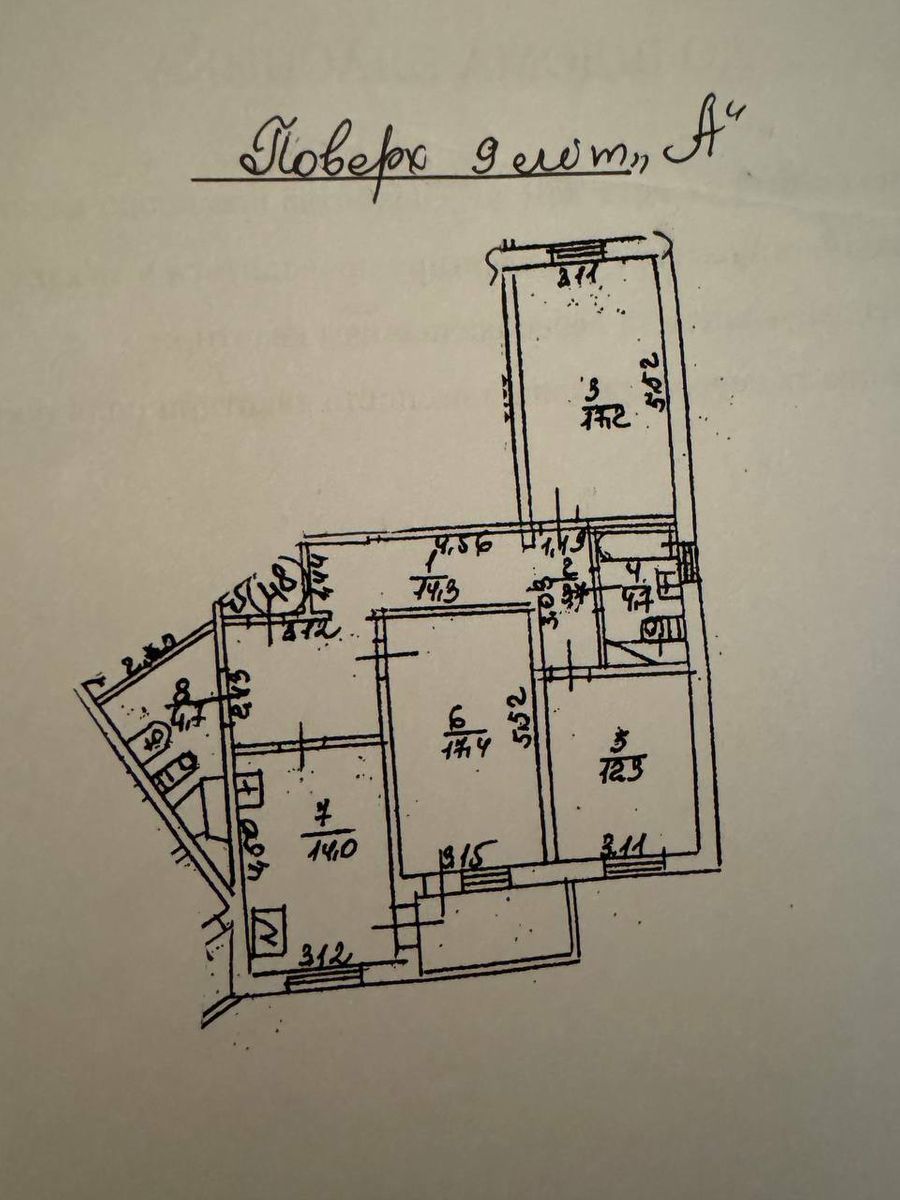 Поверх 9 літ „А"
3.11
3
17,2
5.52
4,56
1,49
1
14,3
2
3,7
4
4,7
3.03
4,44
(48)
2,12
2,43
8
4,7
6
17,4
5.52
5
12,9
7
14,0
4,00
3.15
3.11
3.12